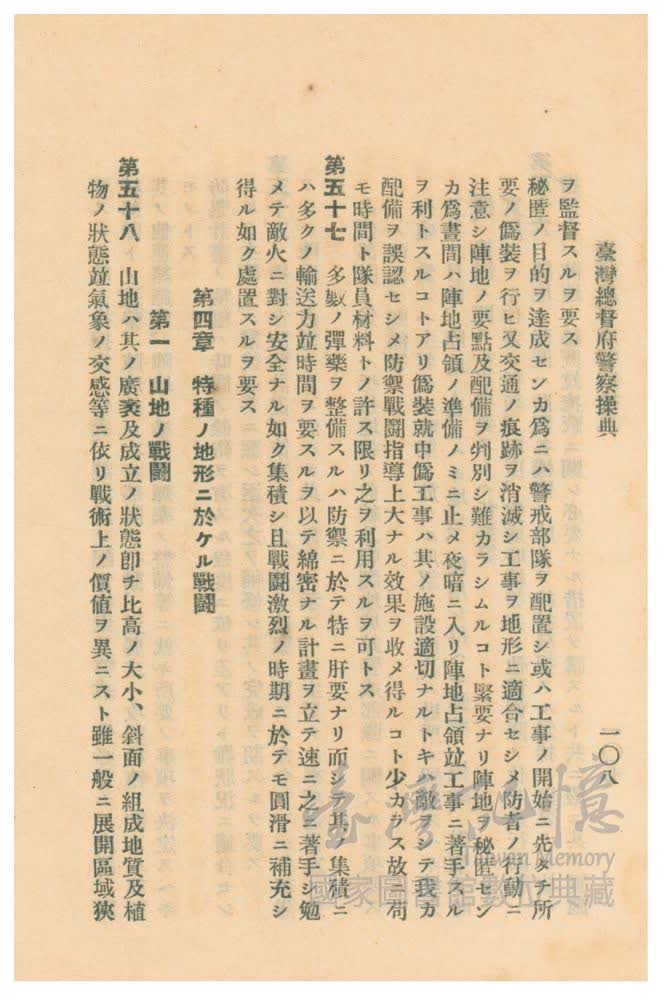 臺灣總督府警察操典
一〇八
ヲ監督スルヲ要ス
秘匿ノ目的ヲ達成センカ爲ニハ警戒部隊ヲ配置シ或ハ工事ノ開始ニ先タチ所
要ノ僞裝ヲ行ヒ又交通ノ痕跡ヲ消滅シ工事ヲ地形ニ適合セシメ防者ノ行動ニ
注意シ陣地ノ要點及配備ヲ判別シ難カラシムルコト緊要ナリ陣地ヲ秘匿セン
カ爲晝間ハ陣地占領ノ準備ノミニ止メ夜暗ニ入リ陣地占領竝工事ニ著手スル
ヲ利トスルコトアリ僞裝就中僞工事ハ其ノ施設適切ナルトキハ敵ヲシテ我カ
配備ヲ誤認セシメ防禦戰鬪指導上大ナル效果ヲ收メ得ルコト少カラス故ニ苟
モ時間ト隊員材料トノ許ス限リ之ヲ利用スルヲ可トス
第五十七　多數ノ彈藥ヲ整備スルハ防禦ニ於テ特ニ肝要ナリ而シテ其ノ集積ニ
ハ多クノ輸送力竝時間ヲ要スルヲ以テ綿密ナル計畫ヲ立テ速ニ之ニ著手シ勉
メテ敵火ニ對シ安全ナル如ク集積シ且戰鬪激烈ノ時期ニ於テモ圓滑ニ補充シ
得ル如ク處置スルヲ要ス
第四章　特種ノ地形ニ於ケル戰鬪
第一　山地ノ戰鬪
第五十八　山地ハ其ノ廣袤及成立ノ狀態卽チ比高ノ大小、斜面ノ組成地質及植
物ノ狀態竝氣象ノ交感等ニ依リ戰術上ノ價値ヲ異ニスト雖一般ニ展開區域狹
臺灣記憶
Taiwan Memory
國家圖書館數位典藏